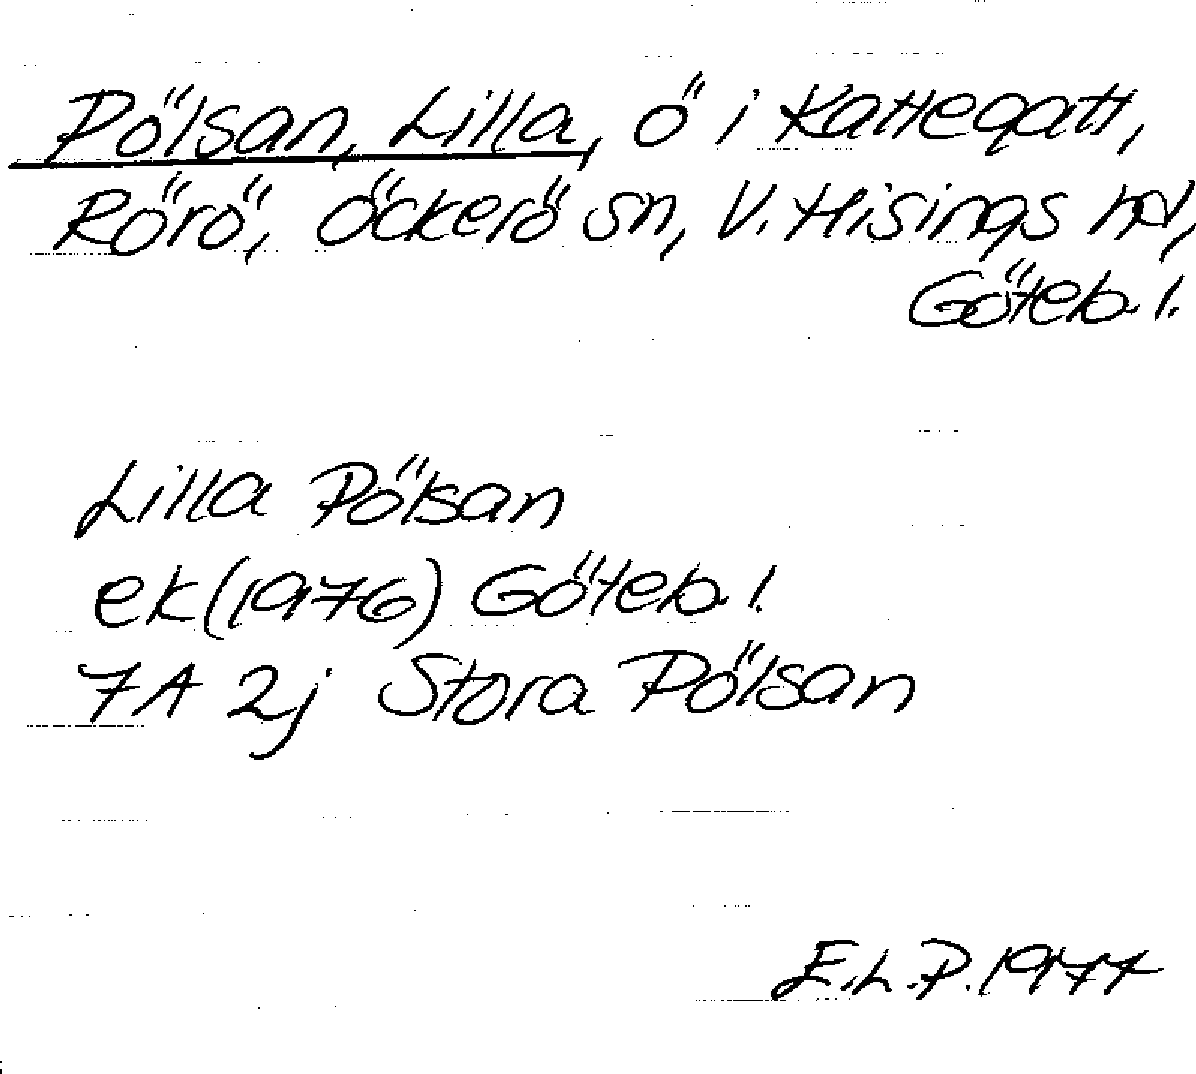 Pölsan, Lilla, ö i Kattegatt,
Rörö, Öckerö sn, V. Hisings hd,
Göteb. l.
Lilla Pölsan
ek (1976) Göteb. l.
7A 2j Stora Pölsan
E.L.P. 1977